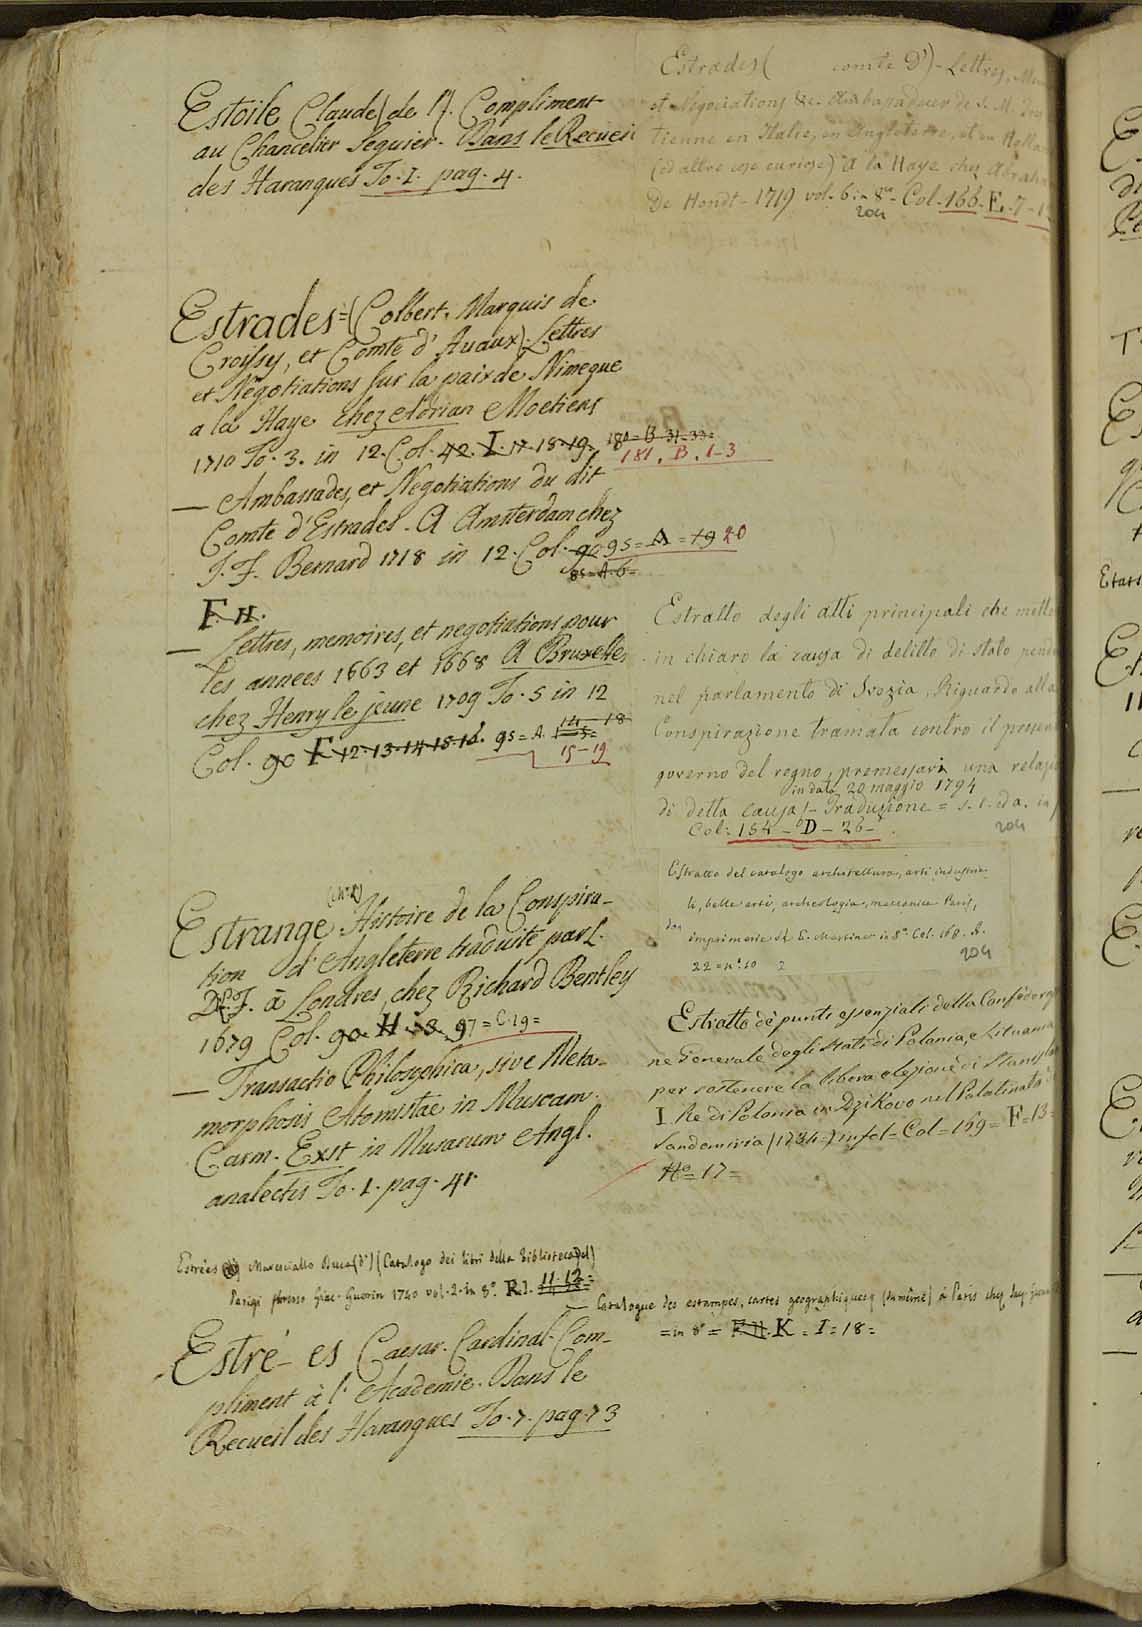 Estoile Claude) de l'). Compliment
au Chancelier Seguier. Dans le Recueil
des Harangues To. I. pag. 4.
Estrades = (Colbert, Marquis de
Croissy, et Comte d'Avaux) Lettres
et Negotiations sur la paix de Nimegue
a la Haye chez Adrian Moetiens
1710 To. 3. in 12. Col. 42. I. 17. 18. 19. 180 = B. 31 = 33 =
181. B. 1-3
— Ambassades, et Negotiations du dit
Comte d'Estrades. A Amsterdam chez
J. F. Bernard 1718 in 12. Col. 90 95 = A = 19 20
85 = A. 6 =
F. H.
— Lettres, memoires, et negotiations pour
les annees 1663 et 1668 A Bruxelles
chez Henry le jeune 1709 To. 5 in 12
Col. 90 F 12. 13. 14. 15. 16. 95 = A. 14 - 18
15 - 19
Estrange Histoire de la Conspira-
tion d'Angleterre traduite par L.
à Londres, chez Richard Bentley
1679 Col. 90. H. 97 = C. 19 =
— Transactio Philosophica, sive Meta-
morphosis Atomistae in Muscam.
Carm. Exst in Musarum Angl.
analectis To. 1. pag. 41.
Estrées Maresciallo Duca (d') (Catalogo dei libri della Biblioteca del)
Parigi presso Giac. Guerin 1740 vol. 2. in 8°. R. I. 11. 12 =
— Catalogue des estampes, cartes geographiques (du même) à Paris chez
= in 8° = F. H. K = I = 18 =
Estré- es Caesar. Cardinal. Com-
pliment à l'Academie. Dans le
Recueil des Harangues To. 7. pag. 73
Estrades ( comte D') - Lettres,
et Negociations &c. Ambassadeur de S. M.
tienne en Italie, en Angleterre, et en
(ed altre cose curiose) A la Haye chez Abraham
De Hondt - 1719 vol. 6. in 8° - Col. 166. E. 7 - 1
204
Estratto degli atti principali che mette
in chiaro la causa di delitto di stato
nel parlamento di Svezia, Riguardo alla
Conspirazione tramata contro il presen
governo del regno, premessavi una relaz
in data 20 maggio 1794
di detta causa - Traduzione = s. l. ed a. in
Col: 154 - D - 26 -
204
Estratto del catalogo architettura, arti industria
li, belle arti, archeologia, meccanica Paris,
imprimerie de E. Martinet in 8° Col. 168. A.
22 = n°. 10
204
Estratto de' punti essenziali della Confederaz
ne Generale degli Stati di Polonia, e Lituania
per sostenere la libera elezione di Stanislao
I. Re di Polonia in Dzikovo nel Palatinato
Sandomiria (1734 =) in fol = Col = 169 = F = 13 =
N° = 17 =